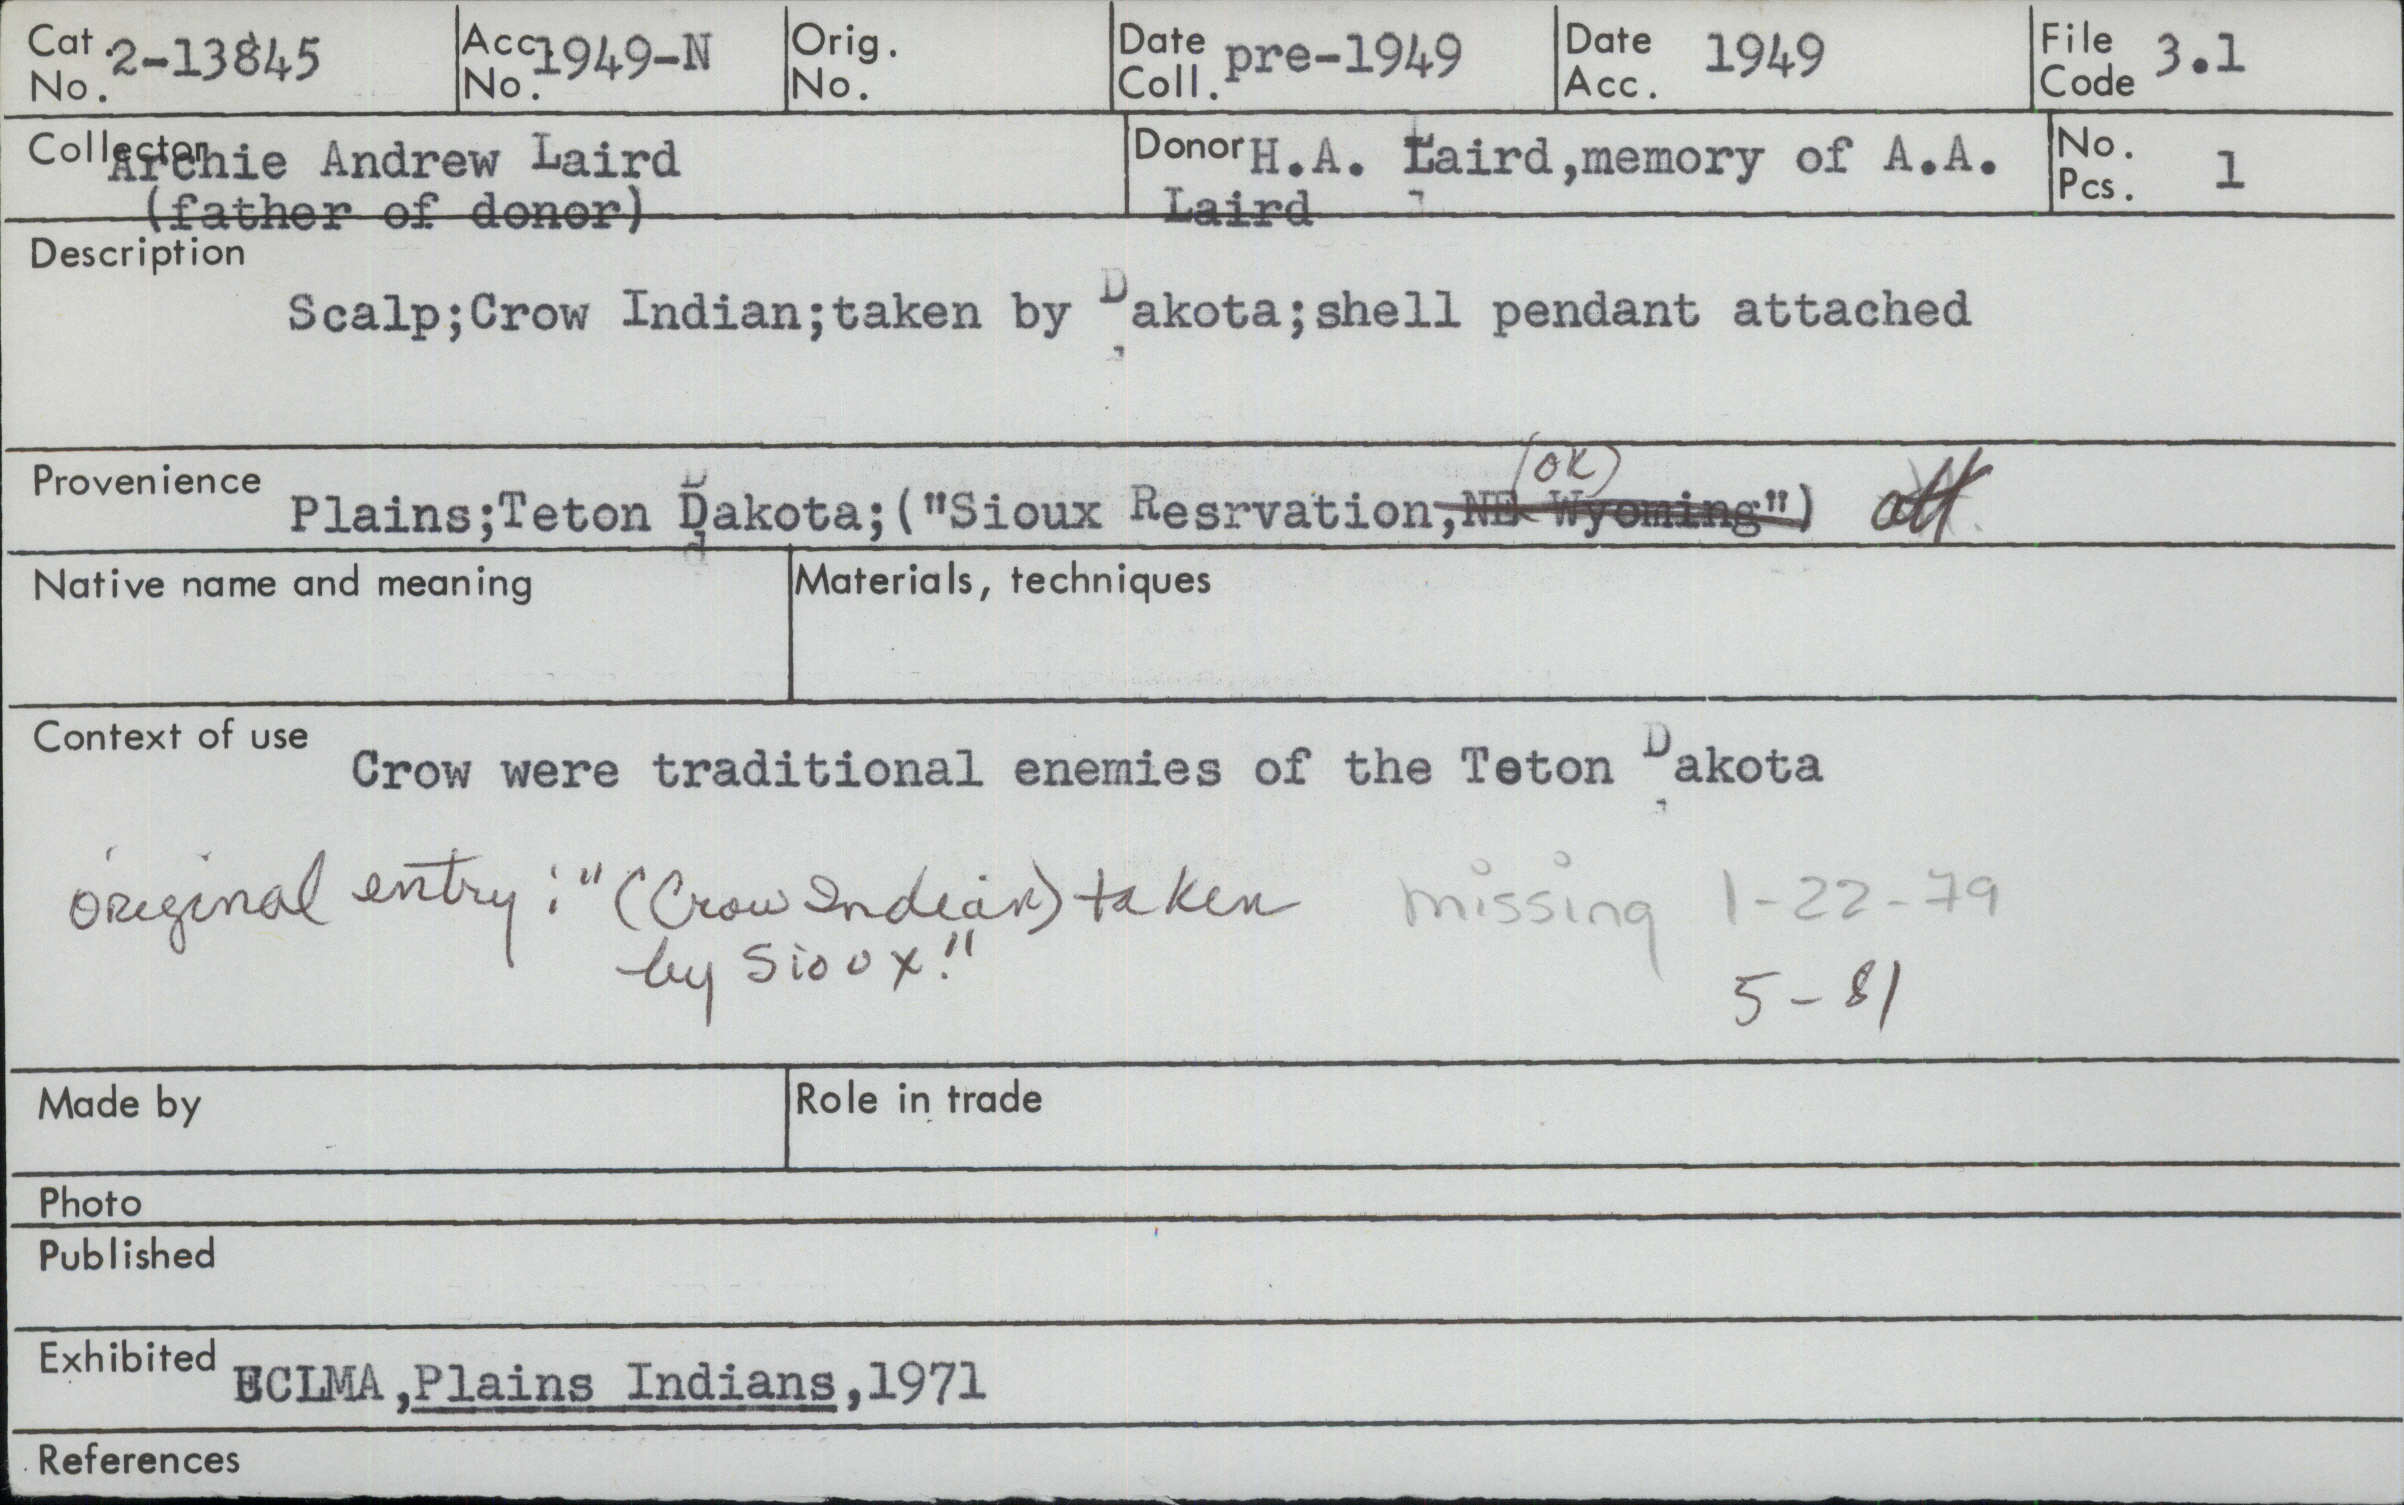 Cat. No. 2-13845 Acc. No. 1949-N Orig. No. Date Coll. pre-1949 Date Acc. 1949 File Code 3.1
Collector Archie Andrew Laird Donor H.A. Laird,memory of A.A. No. Pcs. 1
(father of donor) Laird
Description
Scalp;Crow Indian;taken by Dakota;shell pendant attached
(OK)
Provenience Plains;Teton Dakota;("Sioux Resrvation,NE Wyoming")
Native name and meaning Materials, techniques
Context of use Crow were traditional enemies of the Teton Dakota
original entry: "(Crow Indian) taken missing 1-22-79
by Sioux." 5-81
Made by Role in trade
Photo
Published
Exhibited UCLMA,Plains Indians,1971
References